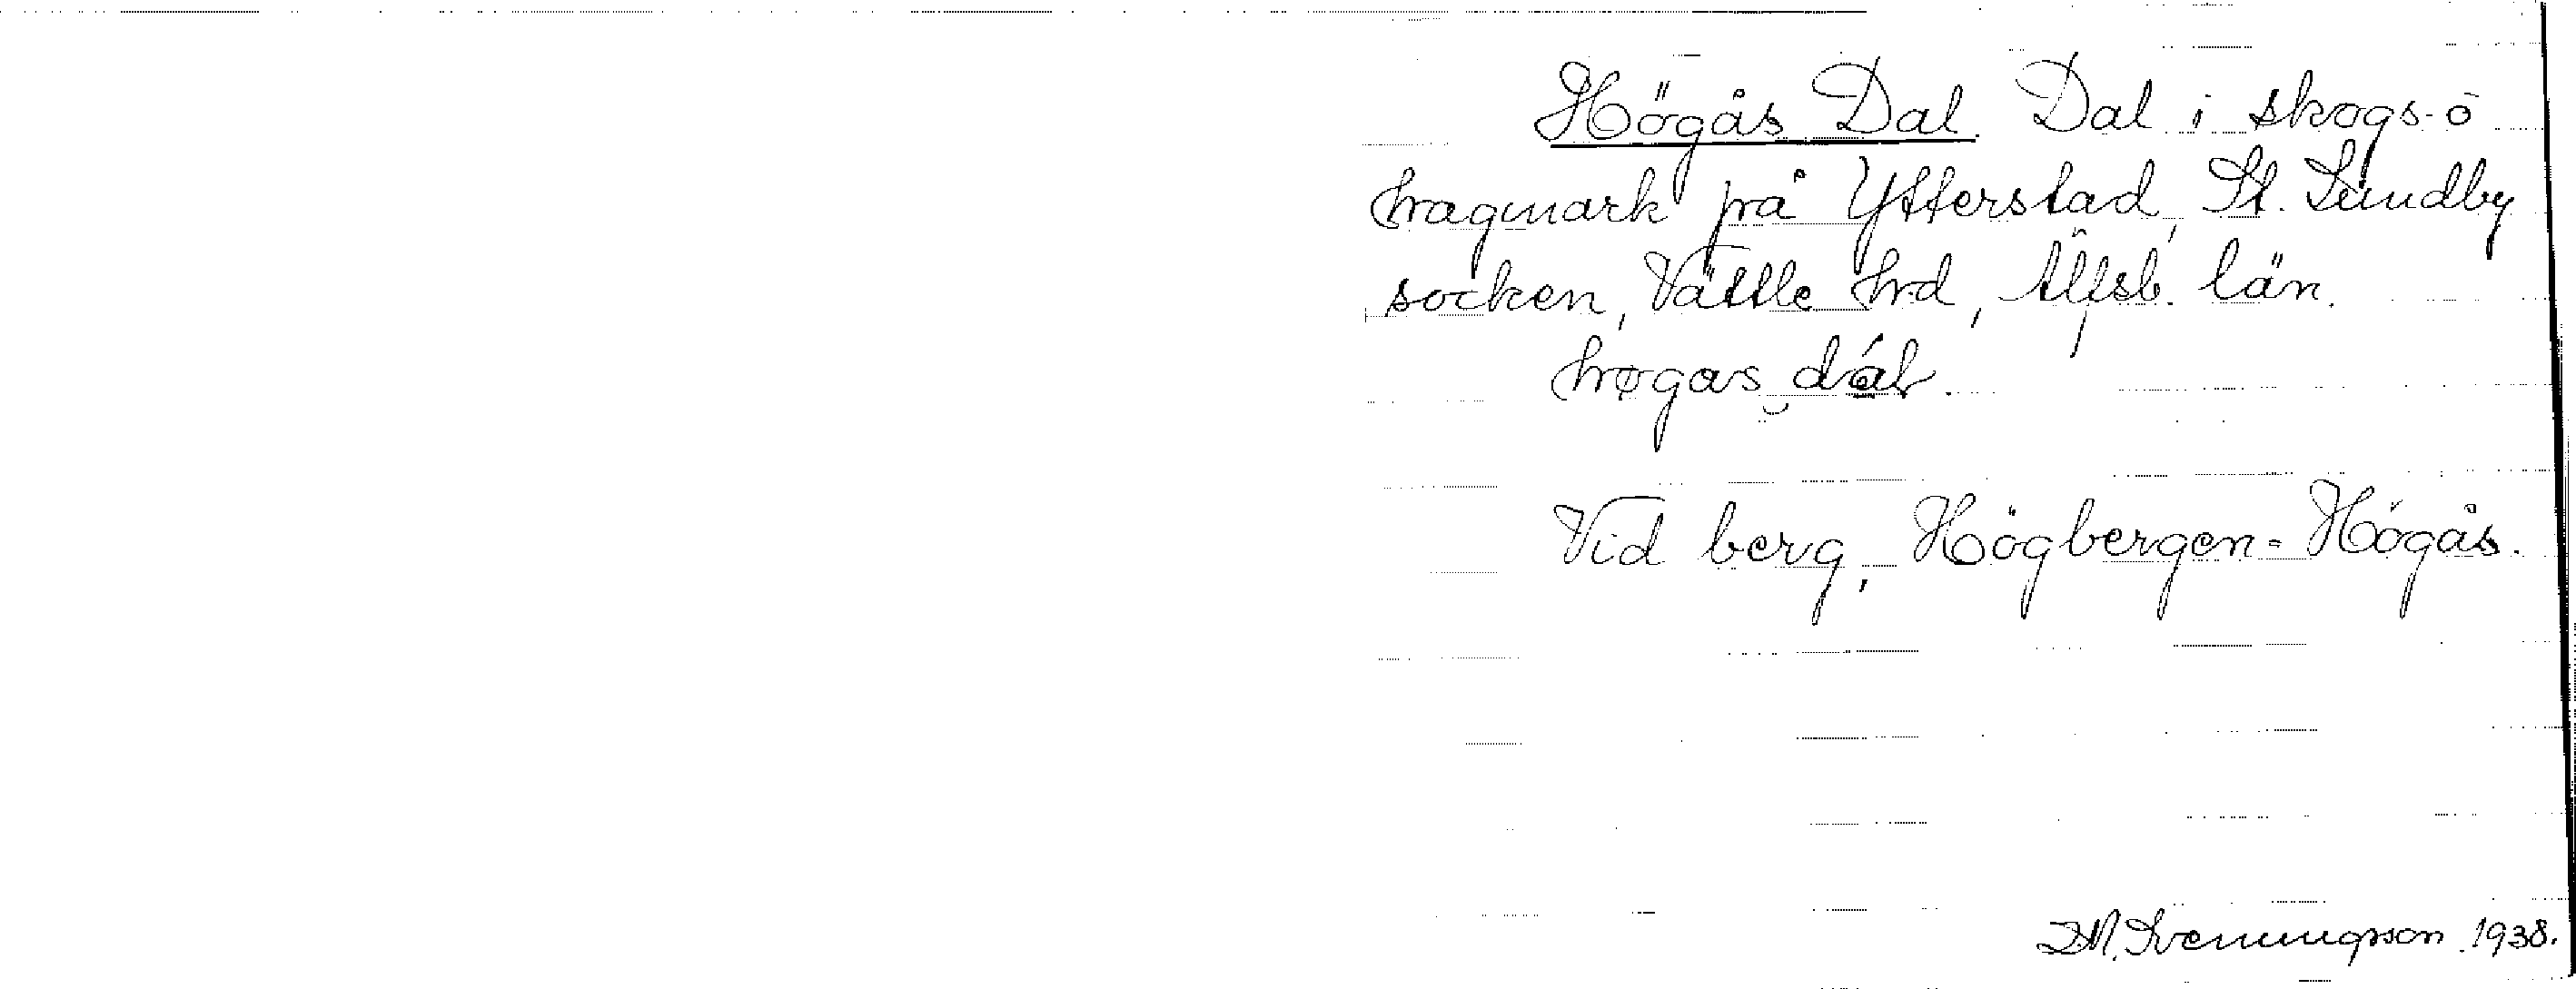 Högås Dal. Dal i skogs- o
hagmark på Ytterstad, St. Lundby
socken, Vättle hd, Älfsb. län.
høgas dál.
Vid berg, Högbergen = Högås.
D.M. Svenningsson 1938.